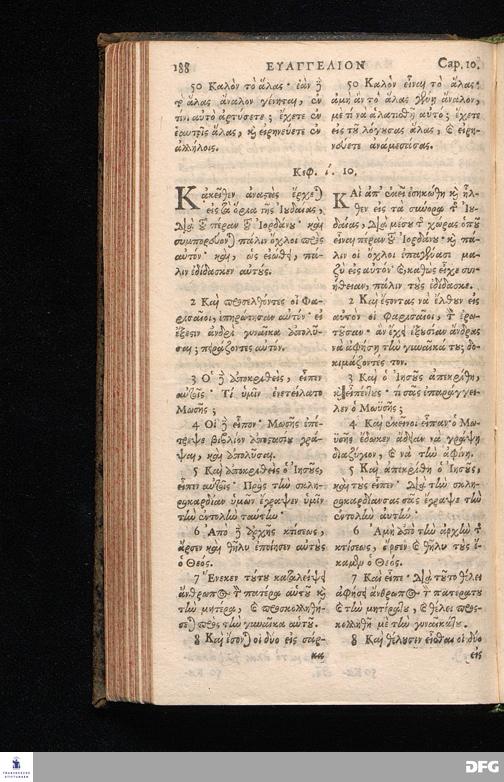 188 ΕΥΑΓΓΕΛΙΟΝ Cap. 10.
50 Καλὸν τὸ ἅλας· ἐὰν ϳ
τὸ ἅλας ἄναλον γένηται, ἐν
τίνι αὐτὸ ἀρτύσετε; ἔχετε ἐν
ἑαυτοῖς ἅλας, καὶ εἰρηνεύετε ἐν
ἀλλήλοις.
Κεφ. ί. 10.
Κἀκεῖθεν ἀναστὰς ἔρχεται
εἰς τὰ ὅρια τῆς Ἰουδαίας,
διὰ τοῦ πέραν τοῦ Ἰορδάνου· καὶ
συμπορεύονται πάλιν ὄχλοι πρὸς
αὐτόν· καὶ, ὡς εἰώθει, πά-
λιν ἐδίδασκεν αὐτούς.
2 Καὶ προσελθόντες οἱ Φα-
ρισαῖοι, ἐπηρώτησαν αὐτόν· εἰ
ἔξεστιν ἀνδρὶ γυναῖκα ἀπολῦ-
σαι; πειράζοντες αὐτόν.
3 Ὁ δὲ ἀποκριθεὶς, εἶπεν
αὐτοῖς· Τί ὑμῖν ἐνετείλατο
Μωσῆς;
4 Οἱ δὲ εἶπον· Μωσῆς ἐπέ-
τρεψε βιβλίον ἀποστασίου γρά-
ψαι, καὶ ἀπολῦσαι.
5 Καὶ ἀποκριθεὶς ὁ Ἰησοῦς,
εἶπεν αὐτοῖς· Πρὸς τὴν σκλη-
ροκαρδίαν ὑμῶν ἔγραψεν ὑμῖν
τὴν ἐντολὴν ταύτην·
6 Ἀπὸ δὲ ἀρχῆς κτίσεως,
ἄρσεν καὶ θῆλυ ἐποίησεν αὐτοὺς
ὁ Θεός.
7 Ἕνεκεν τούτου καταλείψει
ἄνθρωπος τὸν πατέρα αὑτοῦ καὶ
τὴν μητέρα, καὶ προσκολληθή-
σεται πρὸς τὴν γυναῖκα αὑτοῦ.
8 Καὶ ἔσονται οἱ δύο εἰς σάρ-
κα
50 Καλὸν εἶναι τὸ ἅλας·
ἀμὴ ἂν τὸ ἅλας γένῃ ἄναλον,
μὲ τί νὰ ἁλατισθῇ αὐτό; ἔχετε
εἰς τοῦ λόγουσας ἅλας, καὶ εἰρη-
νεύετε ἀναμεσόσας.
ΚΑὶ ἀπ' ἐκεῖ ἐσηκώθη καὶ ἦλ-
θεν εἰς τὰ σύνορα τῆς Ἰου-
δαίας, διὰ μέσου τῆς χώρας ὁποῦ
εἶναι πέραν τοῦ Ἰορδάνου· καὶ πά-
λιν οἱ ὄχλοι ὑπαγαίνασι μα-
ζὺ εἰς αὐτόν· καὶ, καθὼς εἶχε συν-
ήθειαν, πάλιν τοὺς ἐδίδασκε.
2 Καὶ ἔσοντας νὰ ἔλθουν εἰς
αὐτὸν οἱ Φαρισαῖοι, τὸν ἐρω-
τοῦσαν· ἂν ἔχῃ ἐξουσίαν ἄνδρας
νὰ ἀφήσῃ τὴν γυναῖκά του; δο-
κιμάζοντές τον.
3 Καὶ ὁ Ἰησοῦς ἀπεκρίθη,
καὶ εἶπέν τους· τί σᾶς ἐπαράγγει-
λεν ὁ Μωϋσῆς;
4 Καὶ ἐκεῖνοι εἶπαν· ὁ Μω-
ϋσῆς ἔδωκεν ἄδειαν νὰ γράψῃ
διαζύγιον, καὶ νὰ τὴν ἀφίνῃ.
5 Καὶ ἀπεκρίθη ὁ Ἰησοῦς,
καὶ τοὺς εἶπεν· Διὰ τὴν σκλη-
ροκαρδίανσας σᾶς ἔγραψε τὴν
ἐντολὴν αὐτήν·
6 Ἀμὴ ἀπὸ τὴν ἀρχὴν τῆς
κτίσεως, ἄρσεν καὶ θῆλυ τοὺς ἔ-
καμεν ὁ Θεός.
7 Καὶ εἶπε· Διὰ τοῦτο θέλει
ἀφήσει ἄνθρωπος τὸν πατέρατου
καὶ τὴν μητέρατου, καὶ θέλει προσ-
κολληθῇ μὲ τὴν γυναῖκάτου.
8 Καὶ θέλουσιν εἶσθαι οἱ δύο
εἰς
FRANCKESCHE
STIFTUNGEN
DFG